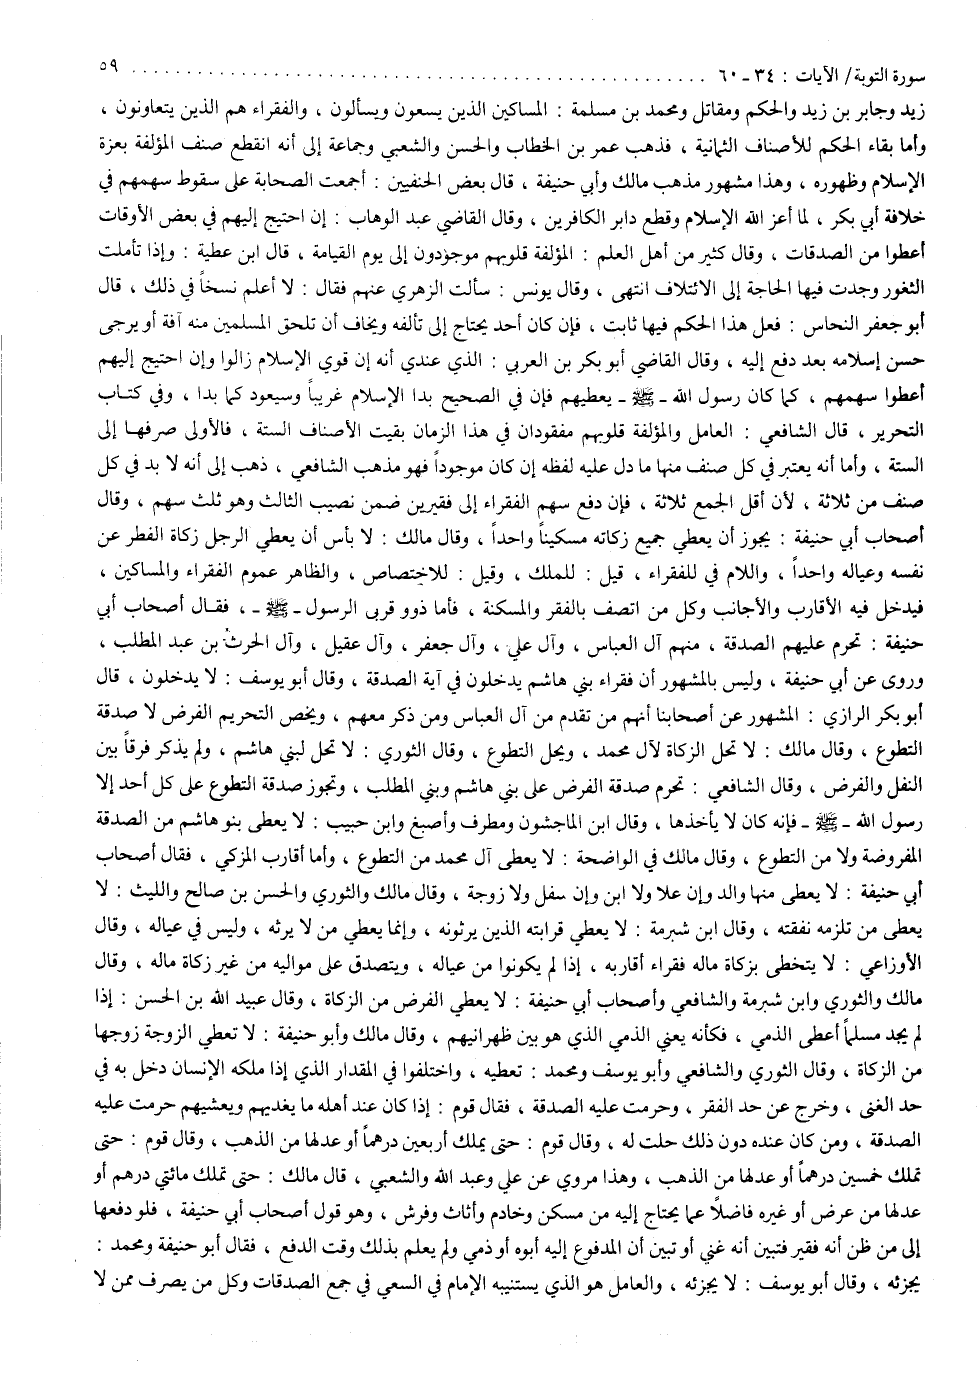 سورة التوبة/ الآيات : ٣٤ ـ ٦٠ .......................................................... ٥٩
زيد وجابر بن زيد والحكم ومقاتل ومحمد بن مسلمة : المساكين الذين يسعون ويسألون ، والفقراء هم الذين يتعاونون ،
وأما بقاء الحكم للأصناف الثمانية ، فذهب عمر بن الخطاب والحسن والشعبي وجماعة إلى أنه انقطع صنف المؤلفة بعزة
الإسلام وظهوره ، وهذا مشهور مذهب مالك وأبي حنيفة ، قال بعض الحنفيين : أجمعت الصحابة على سقوط سهمهم في
خلافة أبي بكر ، لما أعز الله الإسلام وقطع دابر الكافرين ، وقال القاضي عبد الوهاب : إن احتيج إليهم في بعض الأوقات
أعطوا من الصدقات ، وقال كثير من أهل العلم : المؤلفة قلوبهم موجودون إلى يوم القيامة ، قال ابن عطية : وإذا تأملت
الثغور وجدت فيها الحاجة إلى الائتلاف انتهى ، وقال يونس : سألت الزهري عنهم فقال : لا أعلم نسخاً في ذلك ، قال
أبو جعفر النحاس : فعل هذا الحكم فيها ثابت ، فإن كان أحد يحتاج إلى تألفه ويخاف أن تلحق المسلمين منه آفة أو يرجى
حسن إسلامه بعد دفع إليه ، وقال القاضي أبو بكر بن العربي : الذي عندي أنه إن قوي الإسلام زالوا وإن احتيج إليهم
أعطوا سهمهم ، كما كان رسول الله ـ ﷺ ـ يعطيهم فإن في الصحيح بدا الإسلام غريباً وسيعود كما بدا ، وفي كتاب
التحرير ، قال الشافعي : العامل والمؤلفة قلوبهم مفقودان في هذا الزمان بقيت الأصناف الستة ، فالأولى صرفها إلى
الستة ، وأما أنه يعتبر في كل صنف منها ما دل عليه لفظه إن كان موجوداً فهو مذهب الشافعي ، ذهب إلى أنه لا بد في كل
صنف من ثلاثة ، لأن أقل الجمع ثلاثة ، فإن دفع سهم الفقراء إلى فقيرين ضمن نصيب الثالث وهو ثلث سهم ، وقال
أصحاب أبي حنيفة : يجوز أن يعطي جميع زكاته مسكيناً واحداً ، وقال مالك : لا بأس أن يعطي الرجل زكاة الفطر عن
نفسه وعياله واحداً ، واللام في للفقراء ، قيل : للملك ، وقيل : للاختصاص ، والظاهر عموم الفقراء والمساكين ،
فيدخل فيه الأقارب والأجانب وكل من اتصف بالفقر والمسكنة ، فأما ذوو قربى الرسول ـ ﷺ ـ ، فقال أصحاب أبي
حنيفة : تحرم عليهم الصدقة ، منهم آل العباس ، وآل علي ، وآل جعفر ، وآل عقيل ، وآل الحرث بن عبد المطلب ،
وروى عن أبي حنيفة ، وليس بالمشهور أن فقراء بني هاشم يدخلون في آية الصدقة ، وقال أبو يوسف : لا يدخلون ، قال
أبو بكر الرازي : المشهور عن أصحابنا أنهم من تقدم من آل العباس ومن ذكر معهم ، ويخص التحريم الفرض لا صدقة
التطوع ، وقال مالك : لا تحل الزكاة لآل محمد ، ويحل التطوع ، وقال الثوري : لا تحل لبني هاشم ، ولم يذكر فرقاً بين
النفل والفرض ، وقال الشافعي : تحرم صدقة الفرض على بني هاشم وبني المطلب ، وتجوز صدقة التطوع على كل أحد إلا
رسول الله ـ ﷺ ـ فإنه كان لا يأخذها ، وقال ابن الماجشون ومطرف وأصبغ وابن حبيب : لا يعطى بنو هاشم من الصدقة
المفروضة ولا من التطوع ، وقال مالك في الواضحة : لا يعطى آل محمد من التطوع ، وأما أقارب المزكي ، فقال أصحاب
أبي حنيفة : لا يعطى منها والد وإن علا ولا ابن وإن سفل ولا زوجة ، وقال مالك والثوري والحسن بن صالح والليث : لا
يعطى من تلزمه نفقته ، وقال ابن شبرمة : لا يعطي قرابته الذين يرثونه ، وإنما يعطي من لا يرثه ، وليس في عياله ، وقال
الأوزاعي : لا يتخطى بزكاة ماله فقراء أقاربه ، إذا لم يكونوا من عياله ، ويتصدق على مواليه من غير زكاة ماله ، وقال
مالك والثوري وابن شبرمة والشافعي وأصحاب أبي حنيفة : لا يعطي الفرض من الزكاة ، وقال عبيد الله بن الحسن : إذا
لم يجد مسلماً أعطى الذمي ، فكأنه يعني الذمي الذي هو بين ظهرانيهم ، وقال مالك وأبو حنيفة : لا تعطي الزوجة زوجها
من الزكاة ، وقال الثوري والشافعي وأبو يوسف ومحمد : تعطيه ، واختلفوا في المقدار الذي إذا ملكه الإنسان دخل به في
حد الغنى ، وخرج عن حد الفقر ، وحرمت عليه الصدقة ، فقال قوم : إذا كان عند أهله ما يغديهم ويعشيهم حرمت عليه
الصدقة ، ومن كان عنده دون ذلك حلت له ، وقال قوم : حتى يملك أربعين درهماً أو عدلها من الذهب ، وقال قوم : حتى
تملك خمسين درهماً أو عدلها من الذهب ، وهذا مروي عن علي وعبد الله والشعبي ، قال مالك : حتى تملك مائتي درهم أو
عدلها من عرض أو غيره فاضلاً عما يحتاج إليه من مسكن وخادم وأثاث وفرش ، وهو قول أصحاب أبي حنيفة ، فلو دفعها
إلى من ظن أنه فقير فتبين أنه غني أو تبين أن المدفوع إليه أبوه أو ذمي ولم يعلم بذلك وقت الدفع ، فقال أبو حنيفة ومحمد :
يجزئه ، وقال أبو يوسف : لا يجزئه ، والعامل هو الذي يستنيبه الإمام في السعي في جمع الصدقات وكل من يصرف ممن لا